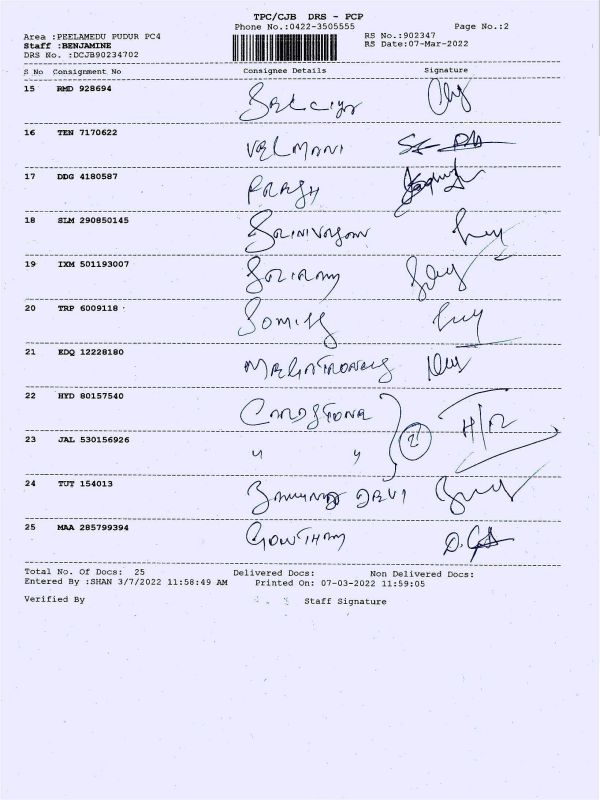 TPC/CJB DRS - PCP
Phone No.:0422-3505555 Page No.:2
Area :PEELAMEDU PUDUR PC4 RS No.:902347
Staff :BENJAMINE RS Date:07-Mar-2022
DRS No. :DCJB90234702
S No Consignment No Consignee Details Signature
15 RMD 928694
16 TEN 7170622 VELMANI
17 DDG 4180587
18 SLM 290850145 SRINIVASAN
19 IXM 501193007
20 TRP 6009118
21 EDQ 12228180
22 HYD 80157540 CARDSTONE H/R
23 JAL 530156926 " " 2
24 TUT 154013 DEVI
25 MAA 285799394 GOWTHAM
Total No. Of Docs: 25 Delivered Docs: Non Delivered Docs:
Entered By :SHAN 3/7/2022 11:58:49 AM Printed On: 07-03-2022 11:59:05
Verified By Staff Signature